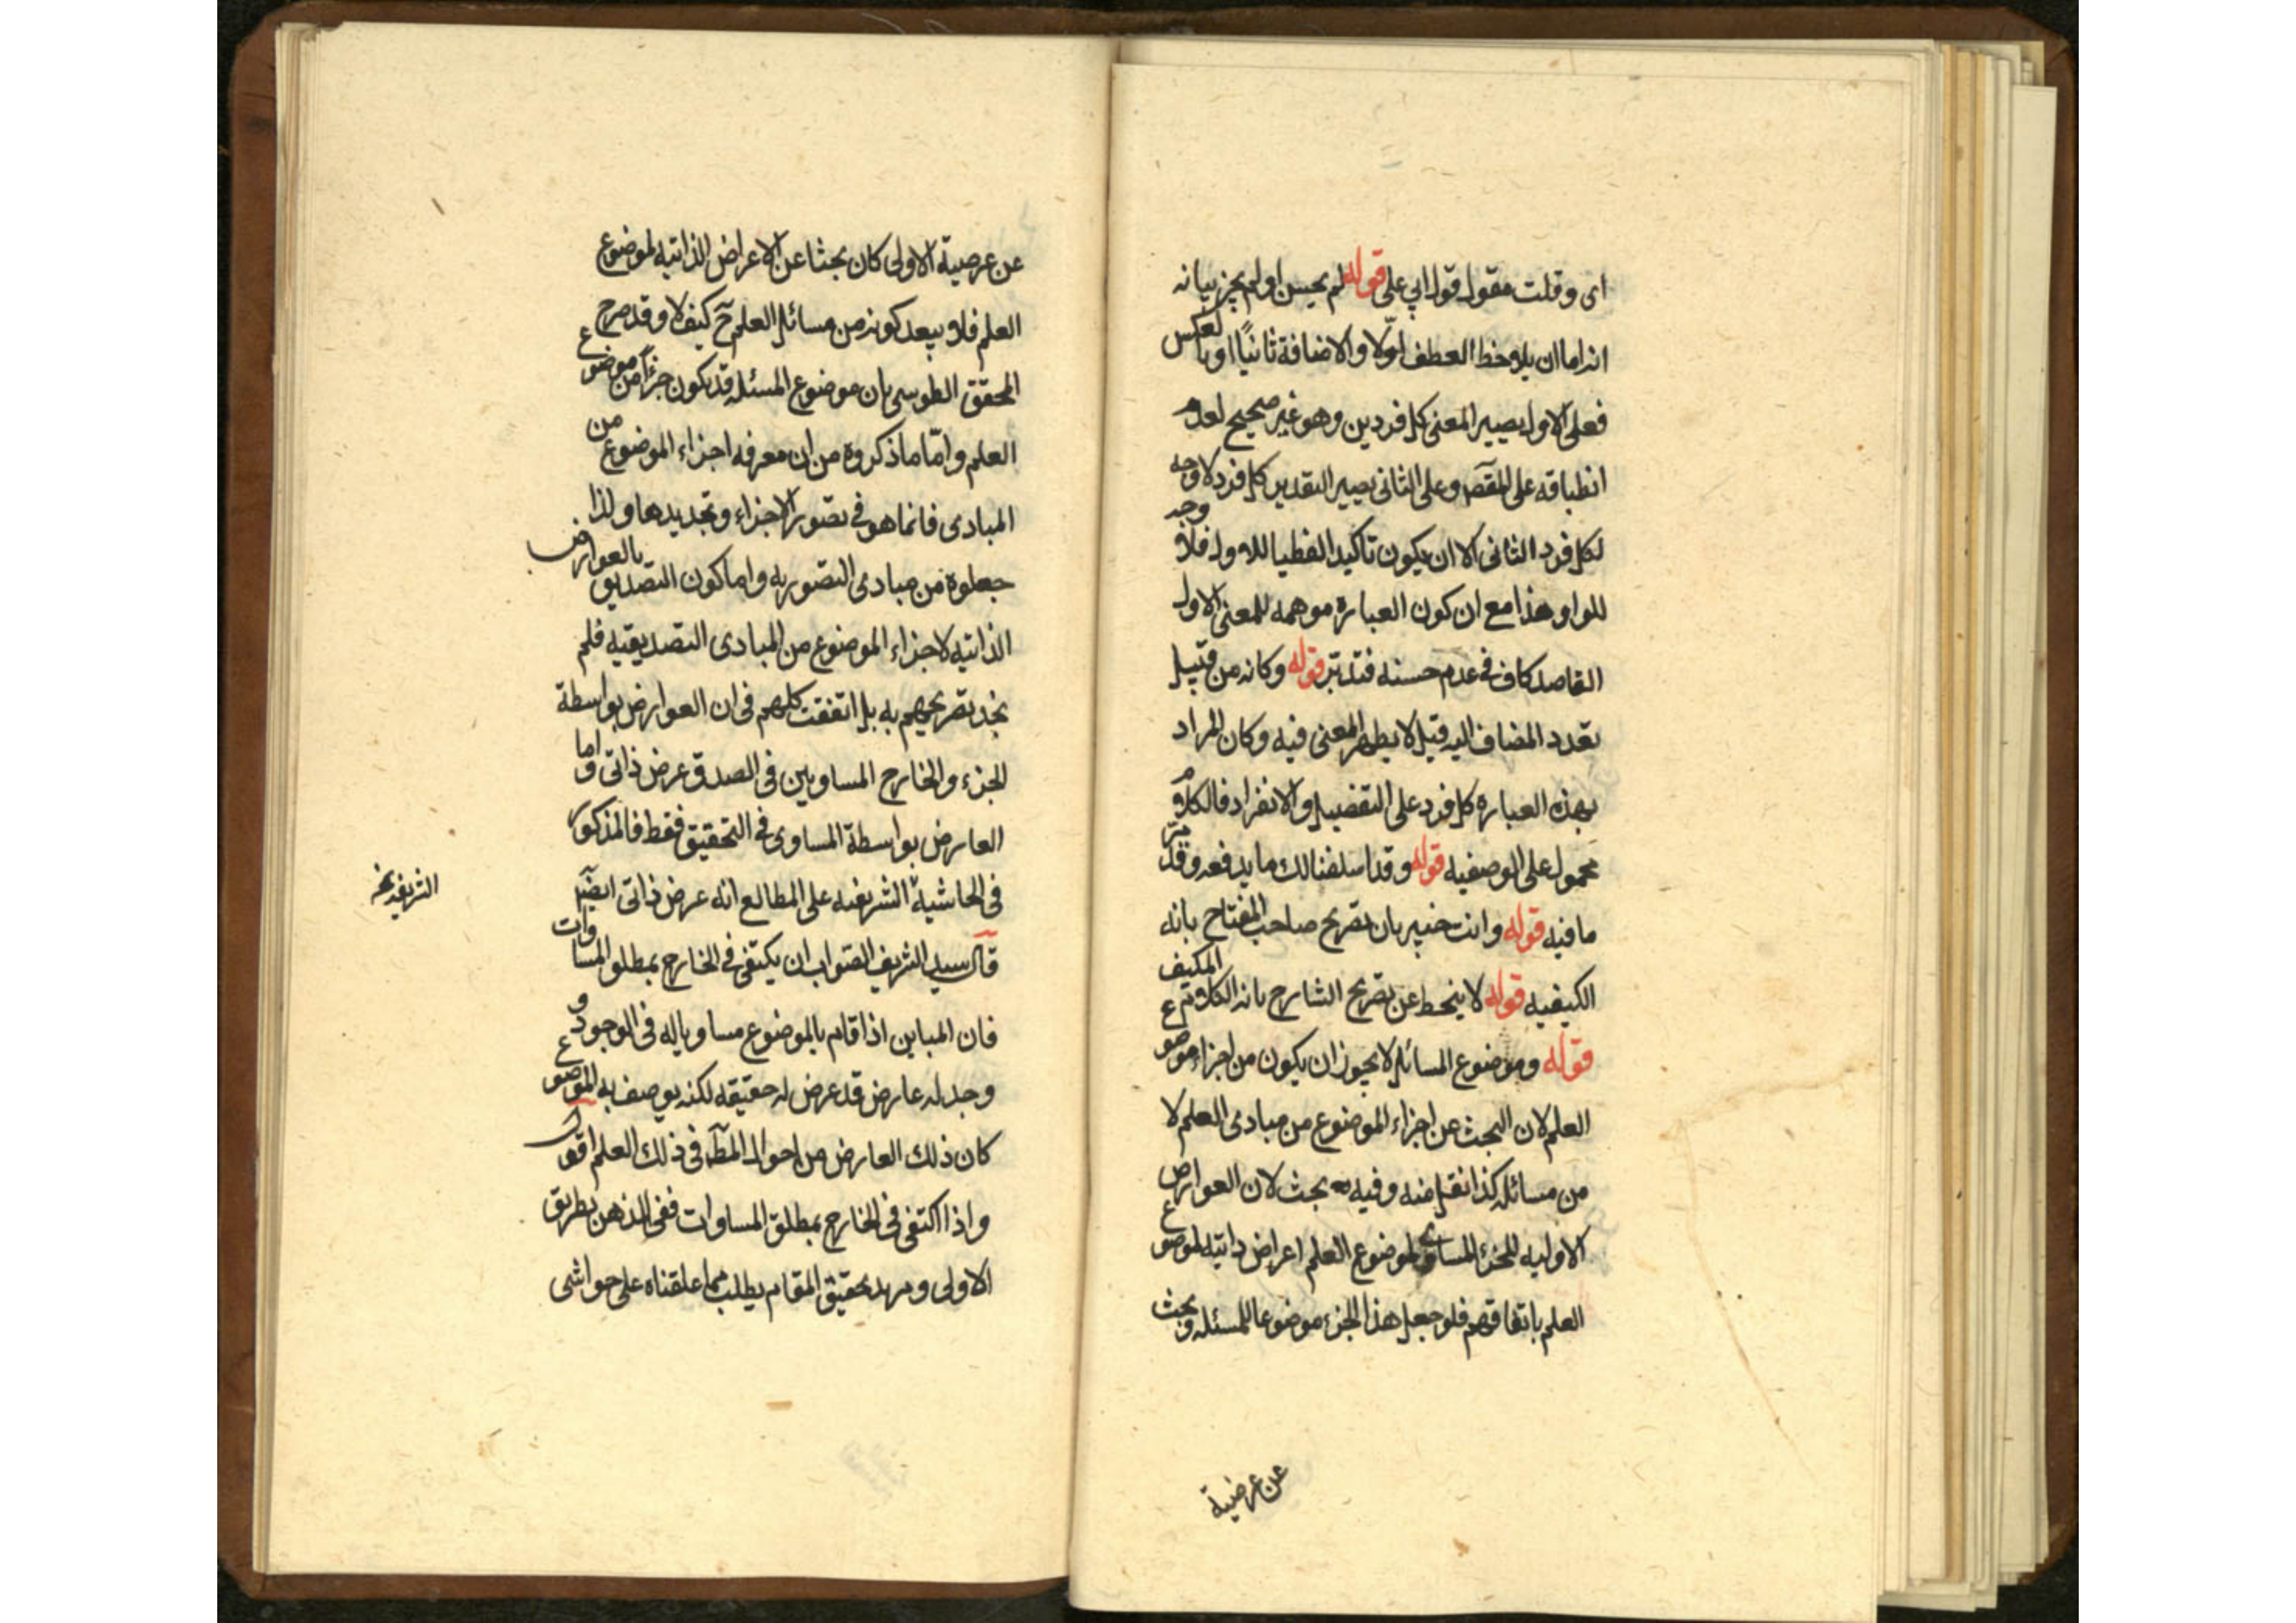 اى وقلت مقول قول ابي على قوله لم يحسن او لم يجز بيانه
انه اما ان يلاحظ العطف اولا والاضافة ثانيًا او بالعكس
فعلى الاول يصير المعنى كل فردين وهو غير صحيح لعدم
انطباقه على المقصد وعلى الثانى يصير التقدير كل فرد لا وجه
لكل فرد الثانى الا ان يكون تاكيدا لفظيا للاول فلا وجه
للواو هذا مع ان كون العبارة موهمه للمعنى الاول
القاصد كاف فى عدم حسنه فتدبّر قوله وكانه من قبيل
تعدد المضاف اليه قيل لا يظهر المعنى فيه وكان المراد
بهذه العبارة كل فرد على التفضيل والانفراد فالكلام
محمول على الوصفيه قوله وقد اسلفنا لك ما يدفعه وقد مرّ
ما فيه قوله وانت خبير بان تصريح صاحب المفتاح بانه
الكيفيه قوله لا ينحط عن تصريح الشارح بانه الكلام المكيف
قوله وموضوع المسائل لا يجوز ان يكون من اجزاء موضوع
العلم لان البحث عن اجزاء الموضوع من مبادى العلم لا
من مسائله كذا نقل منه وفيه بحث لان العوارض
الاوليه للجزء المساوى لموضوع العلم اعراض ذاتيه لموضوع
العلم باتفاقهم فلو جعل هذا الجزء موضوعا للمسئله وبحث
عن عرضية
عن عرضية الاولى كان بحثا عن الاعراض الذاتيه لموضوع
العلم فلا يبعد كونه من مسائل العلم ح كيف لا وقد صرح
المحقق الطوسى بان موضوع المسئله قد يكون جزءًا من موضوع
العلم وامّا ما ذكروه من ان معرفه اجزاء الموضوع من
المبادى فانما هو فى تصور الاجزاء وتحديدها ولذا
جعلوه من مبادى التصوريه واما كون التصديق بالعوارض
الذاتيه لاجزاء الموضوع من المبادى التصديقيه فلم
نجد تصريحهم به بل اتفقت كلهم فى ان العوارض بواسطة
الجزء والخارج المساويين فى الصدق عرض ذاتى واما
العارض بواسطة المساوى فى التحقيق فقط فالمذكور
فى الحاشية الشريفه على المطالع انه عرض ذاتى ايضا
الشريفيه نخه
قال سيد الشريف الصواب ان يكتفى فى الخارج بمطلق المساوات
فان المباين اذا قام بالموضوع مساويا له فى الوجود و
وجد له عارض قد عرض له حقيقه لكنه يوصف به الموضوع
كان ذلك العارض من احوال المط فى ذلك العلم اقول
واذا اكتفى فى الخارج بمطلق المساوات ففى الذهن بطريق
الاولى ومزيد تحقيق المقام يطلب مما علقناه على حواشى